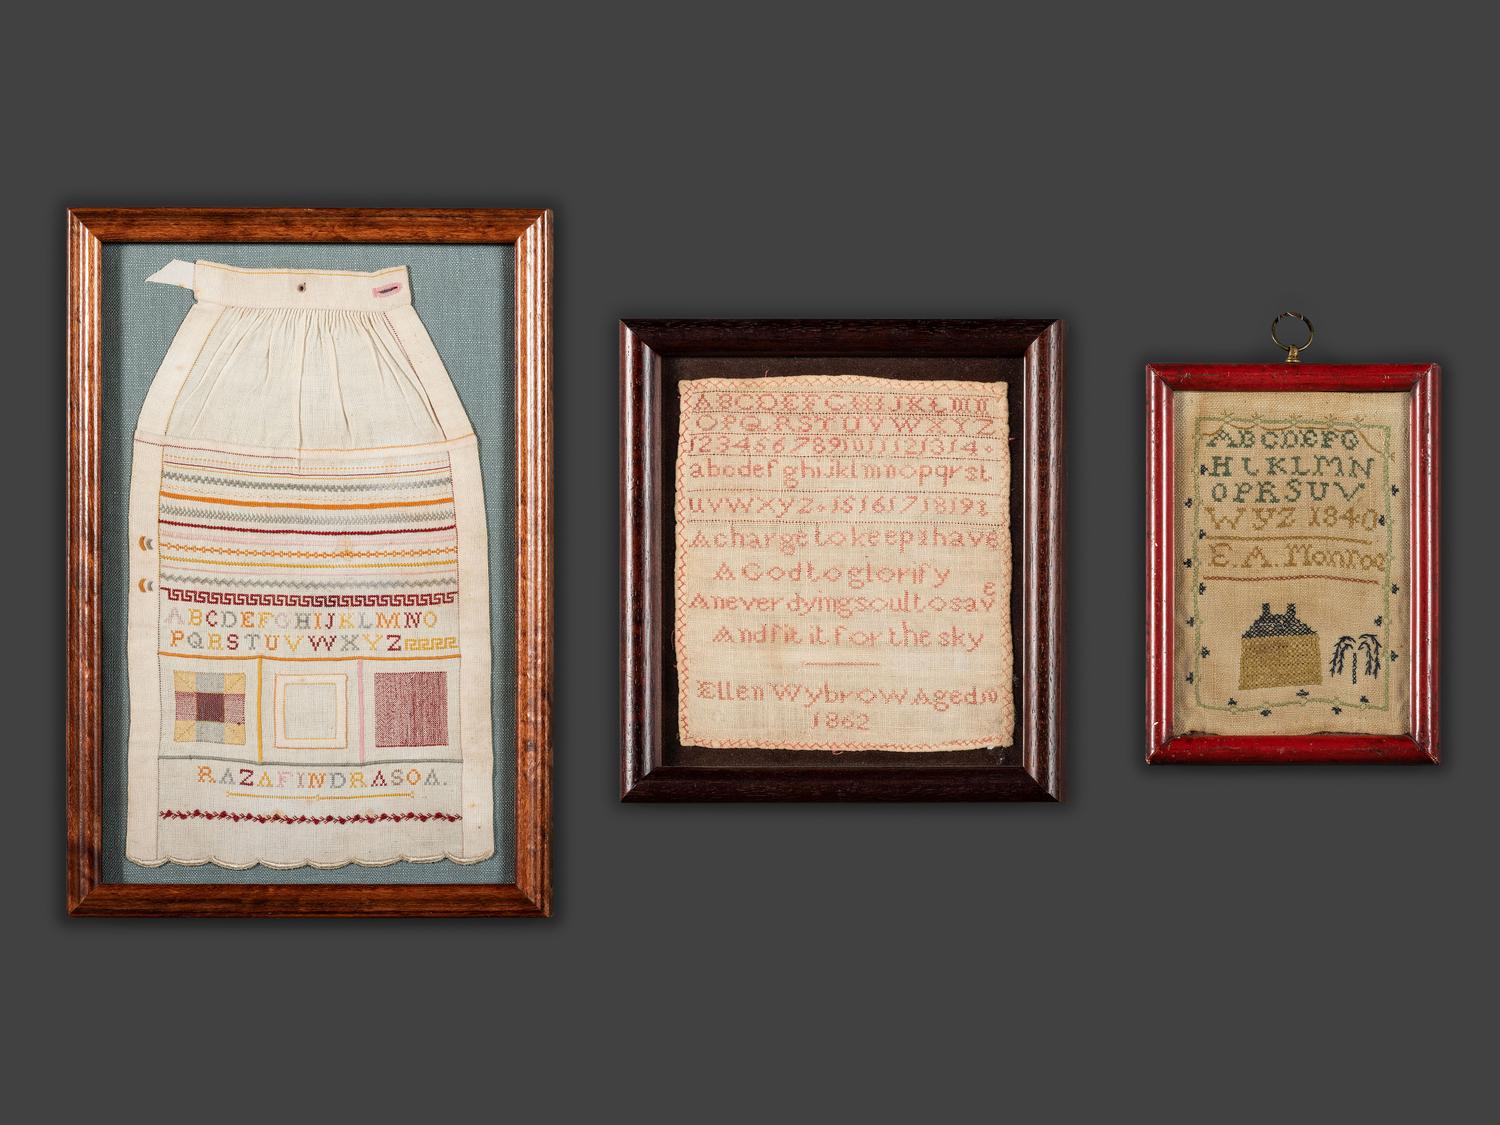 ABCDEFGHIJKLMNO
PQRSTUVWXYZ
RAZAFINDRASOA.
ABCDEFGHIJKLMN
OPQRSTUVWXYZ
abcdefghijklmnopqrst
A charge to keep I have
A God to glorify
A never dying soul to save
And fit it for the sky
Ellen Wybrow Aged 10
1862
ABCDEFG
HIKLMN
OPRSUV
WYZ 1840
E.A. Monroe